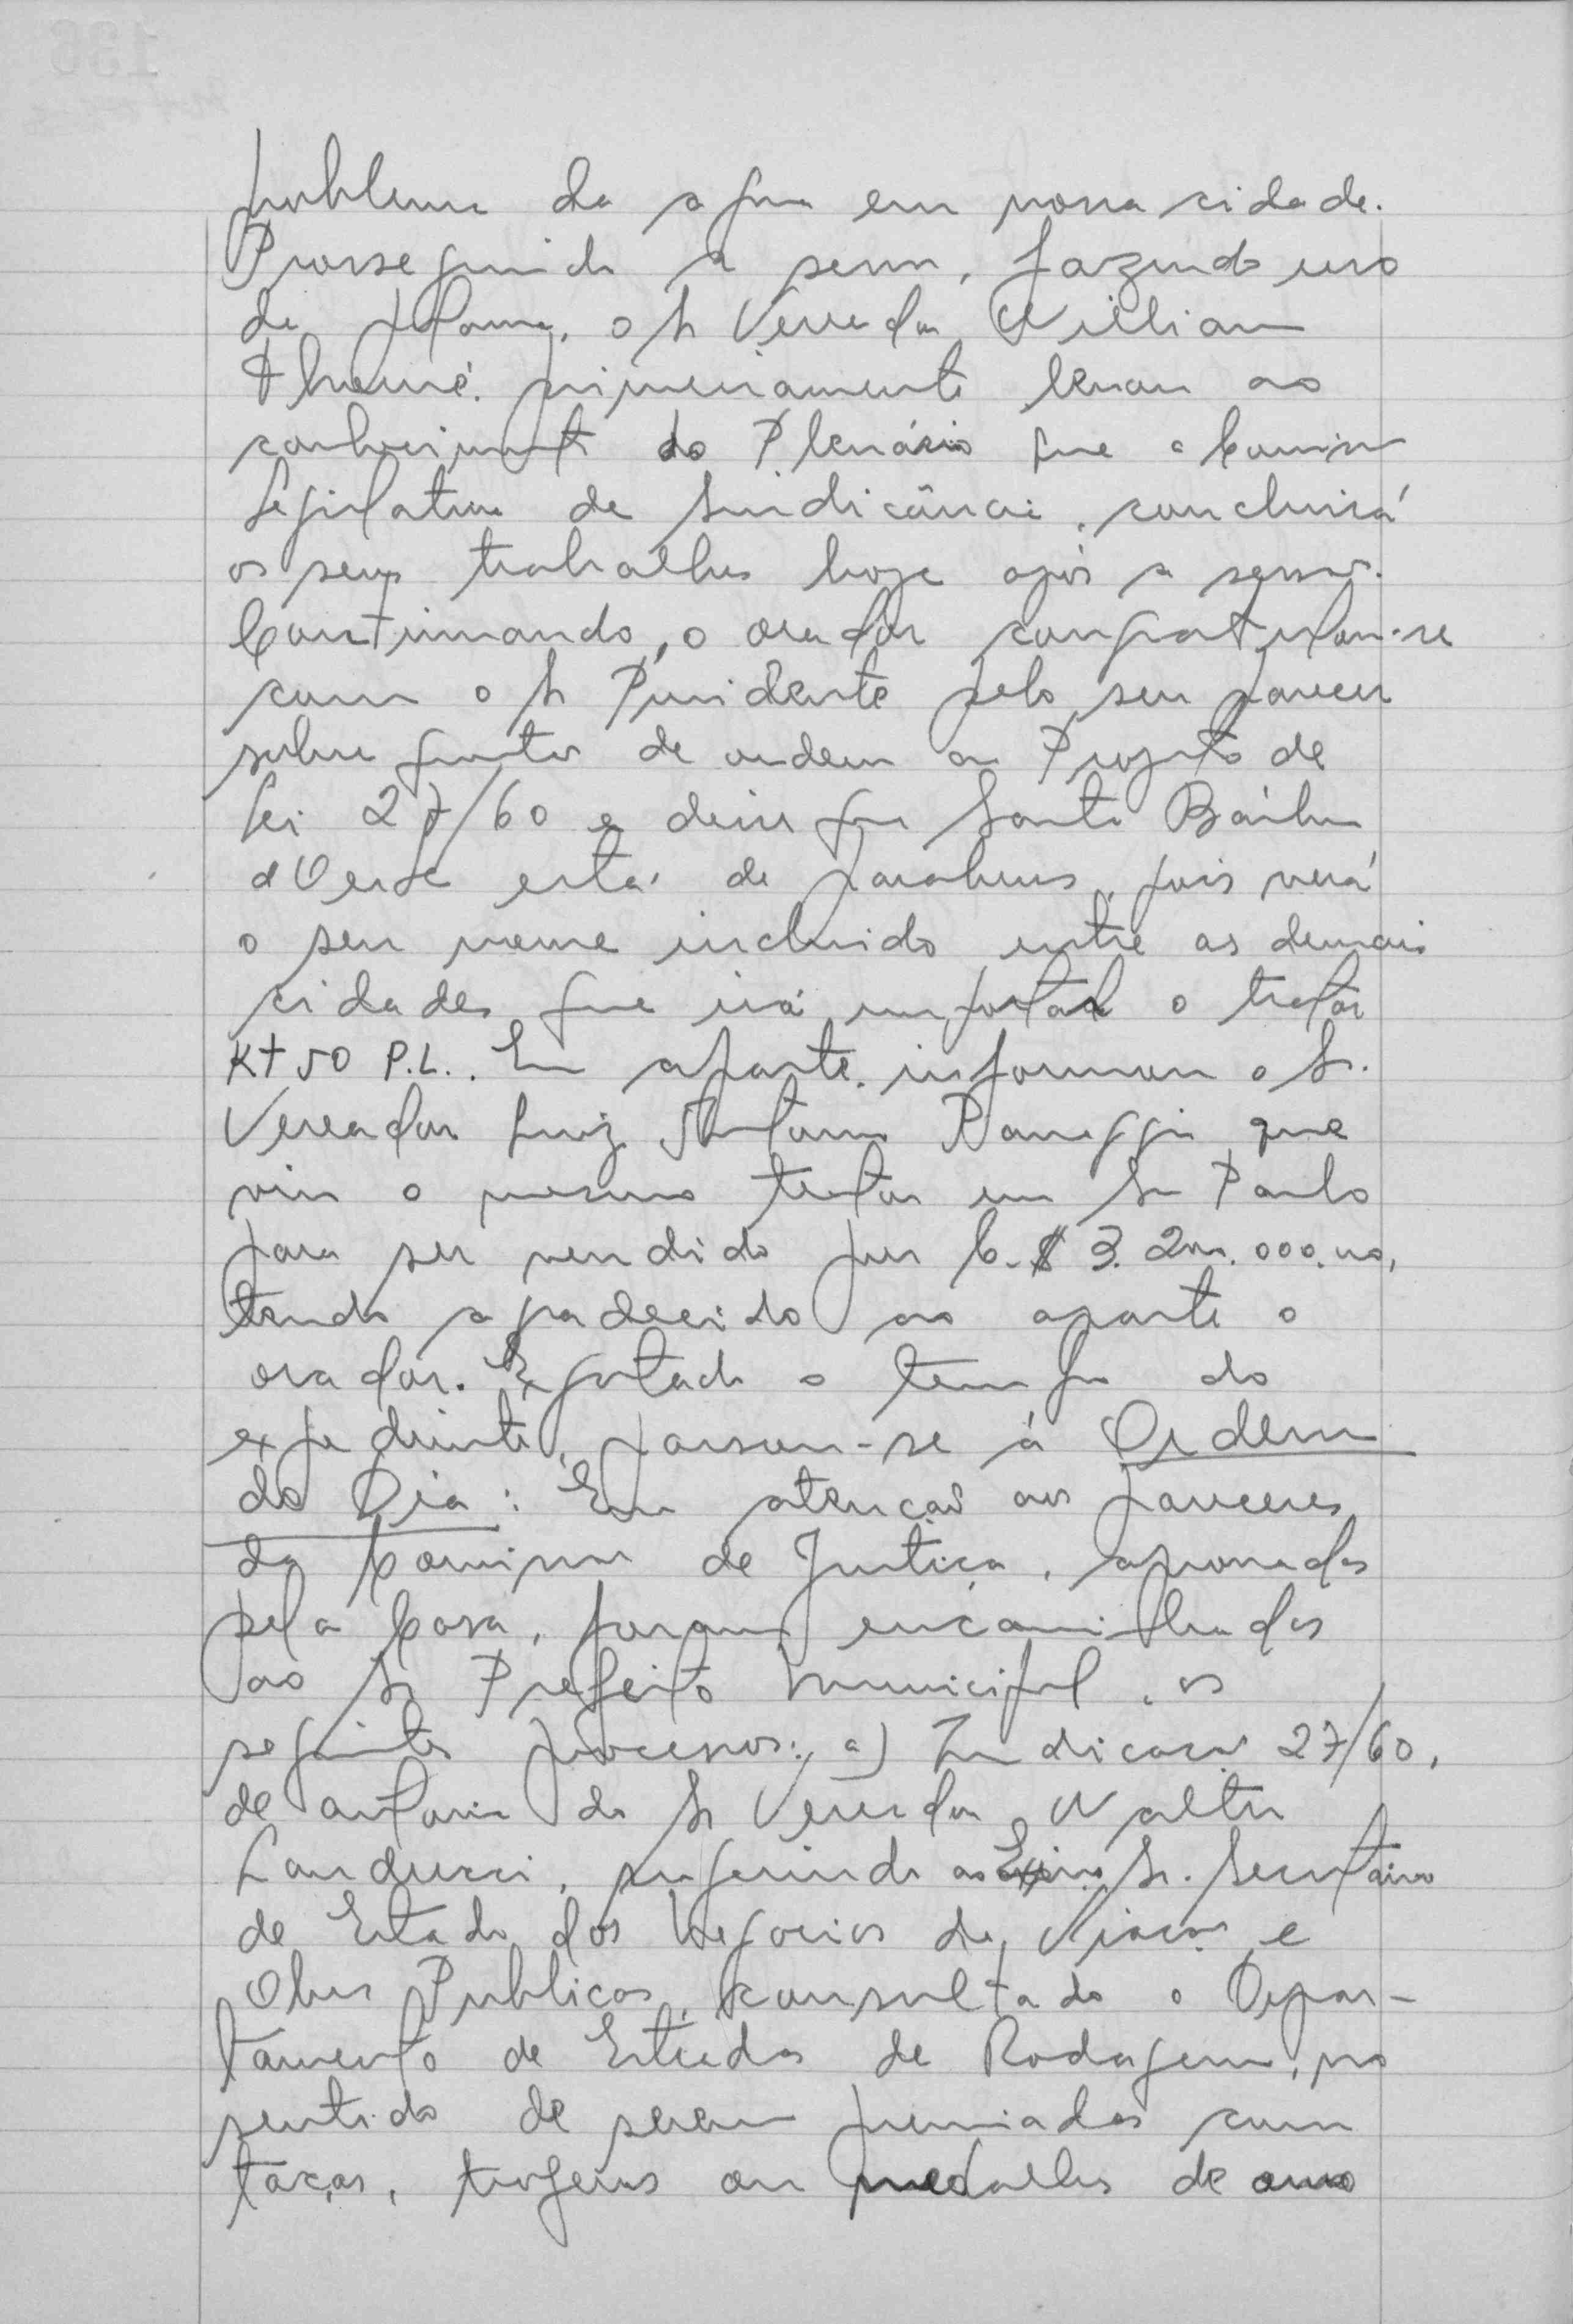 problema da agua em nossa cidade.
Prosseguindo a sessão, fazendo uso
da palavra, o Sr Vereador William
primeiramente levou ao
conhecimento do Plenário que a Comissão
Legislativa de Sindicância, concluirá
os seus trabalhos hoje após a sessão.
Continuando, o orador congratulou-se
com o Sr Presidente pelo seu parecer
sobre questão de ordem ao Projeto de
Lei 27/60 e disse que Santa Bárbara
d'Oeste está de parabens, pois verá
o seu nome incluido entre as demais
cidades que irá importar o trator
KT 50 P.L.. Em aparte, informou o Sr.
Vereador Luiz Antonio Panaggio que
viu o mesmo trator em São Paulo
para ser vendido por C.$ 3.200.000,00,
tendo agradecido ao aparte o
orador. Esgotado o tempo do
expediente, passou-se à Ordem
do Dia: Em atenção aos pareceres
da Comissão de Justiça, aprovados
pela Casa, foram encaminhados
ao Sr Prefeito Municipal, os
seguintes processos: a) Indicação 27/60,
de autoria do Sr Vereador Walter
Landucci, sugerindo ao Exmo Sr. Secretário
de Estado dos Negocios da Viação e
Obras Publicas, consultado o Depar-
tamento de Estradas de Rodagem, no
sentido de serem premiados com
taças, trofeus ou medalhas de ouro